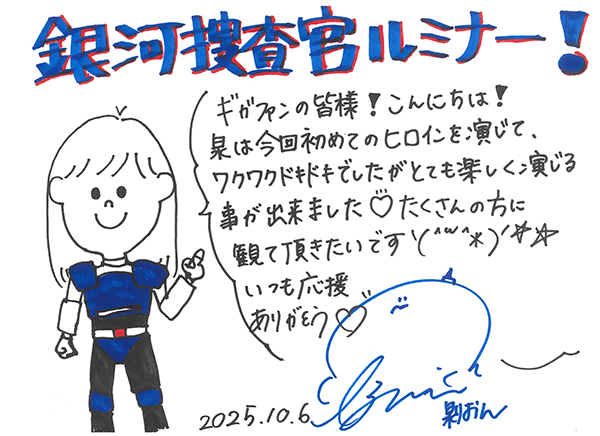 銀河捜査官ルミナー!
ギガファンの皆様!こんにちは!
泉は今回初めてのヒロインを演じて、
ワクワクドキドキでしたがとても楽しく演じる
事が出来ました♡たくさんの方に
観て頂きたいです\(^ω^*)/☆☆
いつも応援
ありがとう♡
2025.10.6